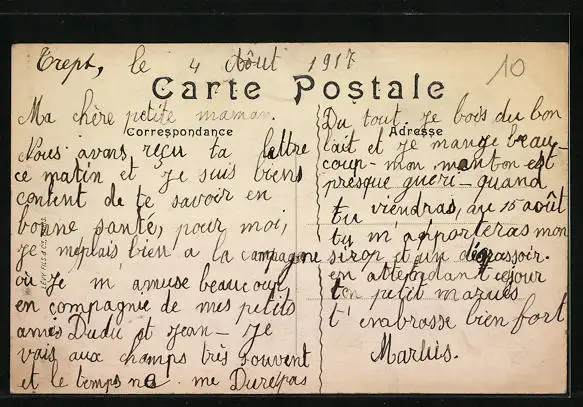 Trept, le 4 Aôut 1917
10
Carte Postale
Correspondance
Adresse
Ma chère petite maman.
Nous avons reçu ta lettre
ce matin et je suis biens
content de te savoir en
bonne santé, pour moi,
je meplais bien a la campagne
ou je m'amuse beaucoup
en compagnie de mes petits
amies Dudu et Jean - Je
vais aux champs très souvent
et le temps ne me Durepas
Du tout. Je bois du bon
lait et je mange beau-
coup - mon manton est
presque guéri - quand
tu viendras, au 15 août
tu m'apporteras mon
sirop et un dégrassoir.
en attendant cejour
ton petit
t'embrasse bien fort
Marius.